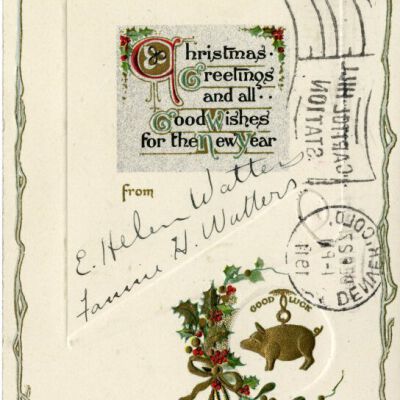 Christmas
Greetings
and all
Good Wishes
for the New Year
from
E. Helen Watters
Fannie H. Watters
GOOD LUCK
CAPITOL HILL
STATION
DENVER, COLO.
1911